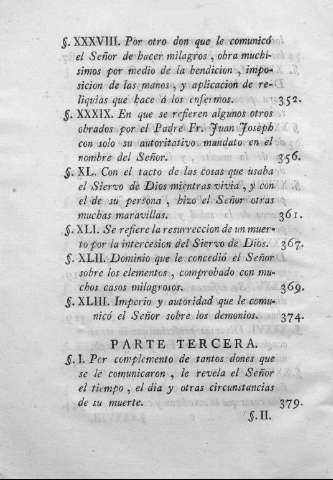 §. XXXVIII. Por otro don que le comunicó
el Señor de hacer milagros, obra muchi-
simos por medio de la bendicion, impo-
sicion de las manos, y aplicacion de re-
liquias que hace á los enfermos. 352.
§. XXXIX. En que se refieren algunos otros
obrados por el Padre Fr. Juan Joseph
con solo su autoritativo mandato en el
nombre del Señor. 356.
§. XL. Con el tacto de las cosas que usaba
el Siervo de Dios mientras vivia, y con
el de su persona, hizo el Señor otras
muchas maravillas. 361.
§. XLI. Se refiere la resurreccion de un muer-
to por la intercesion del Siervo de Dios. 367.
§. XLII. Dominio que le concedió el Señor
sobre los elementos, comprobado con mu-
chos casos milagrosos. 369.
§. XLIII. Imperio y autoridad que le comu-
nicó el Señor sobre los demonios. 374.
PARTE TERCERA.
§. I. Por complemento de tantos dones que
se le comunicaron, le revela el Señor
el tiempo, el dia y otras circunstancias
de su muerte. 379.
§. II.